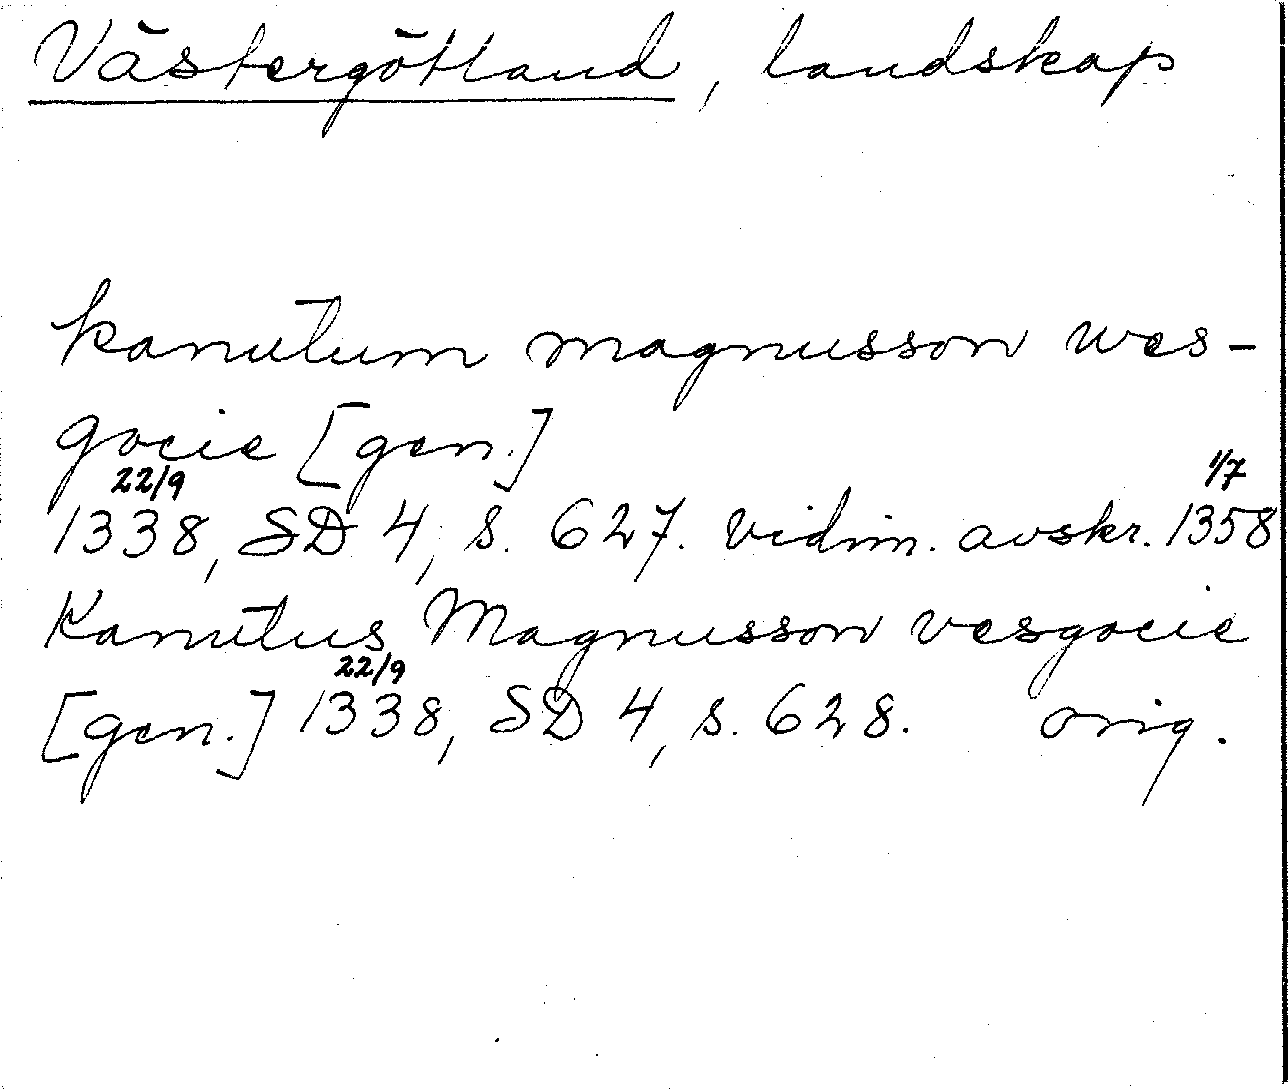 Västergötland, landskap
kanutum magnusson wes-
gocie [gen.]
22/9 1/7
1338, SD 4, s. 627. vidim. avskr. 1358
Kanutus Magnusson vesgocie
22/9
[gen.] 1338, SD 4, s. 628. orig.